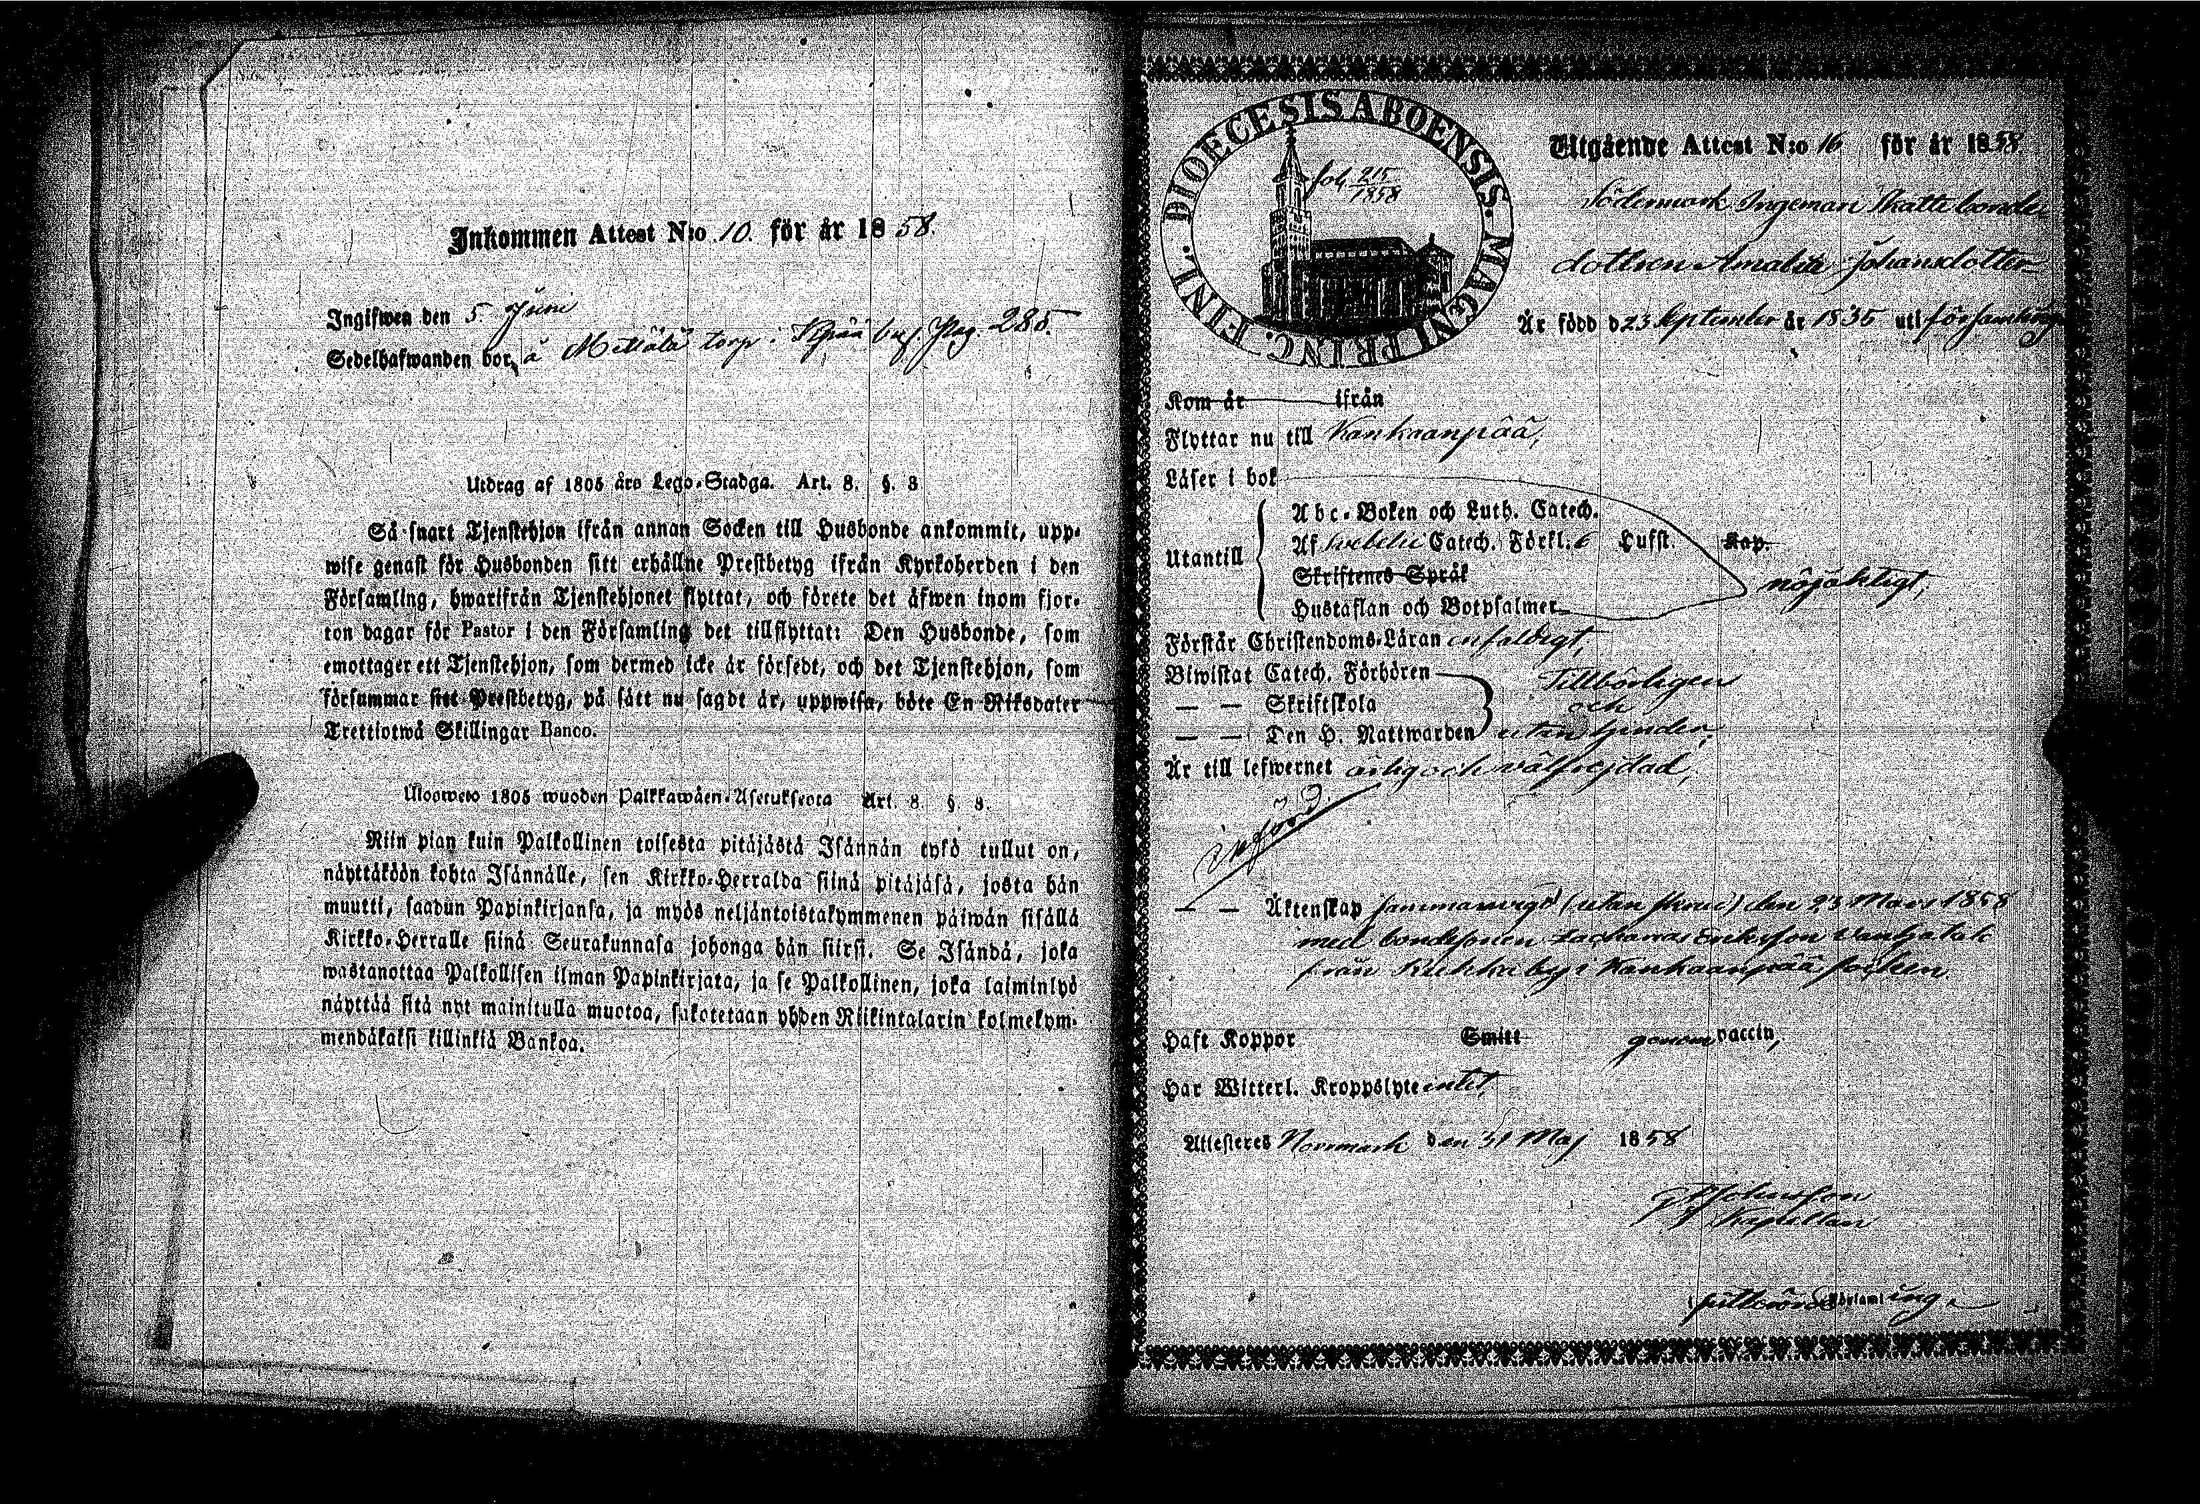 Inkommen Attest N:o 10. för år 1858.
Ingifwen den 5. Juni
Sedelhafwanden bor, å Mettälä torp i Kpää by. Pag. 285.
Utdrag af 1805 års Lego-Stadga. Art. 8. §. 3
Så snart Tjenstehjon ifrån annan Socken till Husbonde ankommit, upp-
wise genast för Husbonden sitt erhållne Prestbetyg ifrån Kyrkoherden i den
Församling, hwarifrån Tjenstehjonet flyttat, och förete det äfwen inom fjor-
ton dagar för Pastor i den Församling det tillflyttat: Den Husbonde, som
emottager ett Tjenstehjon, som dermed icke är försedt, och det Tjenstehjon, som
försummar sitt Prestbetyg, på sätt nu sagdt är, uppwisa, böte En Riksdaler
Trettiotwå Skillingar Banco.
Uloswelo 1805 wuoden Palkkawäen-Asetuksesta Art. 8. §. 3.
Niin pian kuin Palkollinen toisesta pitäjästä Isännän tykö tullut on,
näyttäköön kohta Isännälle, sen Kirkko-Herralda siinä pitäjäsä, josta hän
muutti, saadun Papinkirjansa, ja myös neljäntoistakymmenen päiwän sisällä
Kirkko-Herralle siinä Seurakunnasa johonga hän siirsi. Se Isändä, joka
wastanottaa Palkollisen ilman Papinkirjata, ja se Palkollinen, joka laiminlyö
näyttää sitä nyt mainitulla muotoa, sakotetaan yhden Riikintalarin kolmekym-
mendäkaksi killinkiä Bankoa.
DIOECESIS ABOENSIS. MAGNI PRINC. FINL.
fol. 215
1858
Utgående Attest N:o 16 för år 1858.
Södermark Ingeman Skattebonde
dottren Amalia Johansdotter
Är född d 23 September år 1835 uti församlingen
Kom år ifrån
Flyttar nu till Kankaanpää,
Läser i bok
Utantill
Abc-Boken och Luth. Catech.
Af Svebelii Catech. Förkl. 6 Hufst. Kap.
Skriftenes Språk
Hustaflan och Botpsalmer
nöjaktigt,
Förstår Christendoms-Läran enfaldigt,
Biwistat Catech. Förhören
— — Skriftskola
— — Den H. Nattwarden
Tillbörligen
och
utan hinder,
Är till lefwernet ärlig och välfrejdad,
Införd.
— — Äktenskap sammanvigd (utan krona) den 23 Mars 1858
med bondesonen Zacharias Eriksson
från by i Kankaanpää socken
Haft Koppor Smitt genom vaccin,
Har Witterl. Kroppslyte intet,
Attesteras Norrmark den 31 Maj 1858
Johnsson
Kapellan
i församling